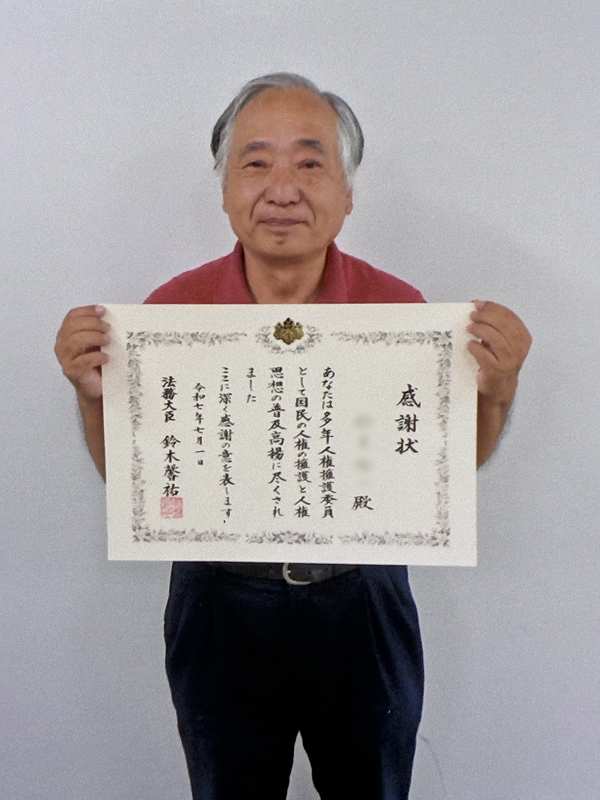 感謝状
殿
あなたは多年人権擁護委員
として国民の人権の擁護と人権
思想の普及高揚に尽くされ
ました
ここに深く感謝の意を表します
令和七年七月一日
法務大臣 鈴木馨祐